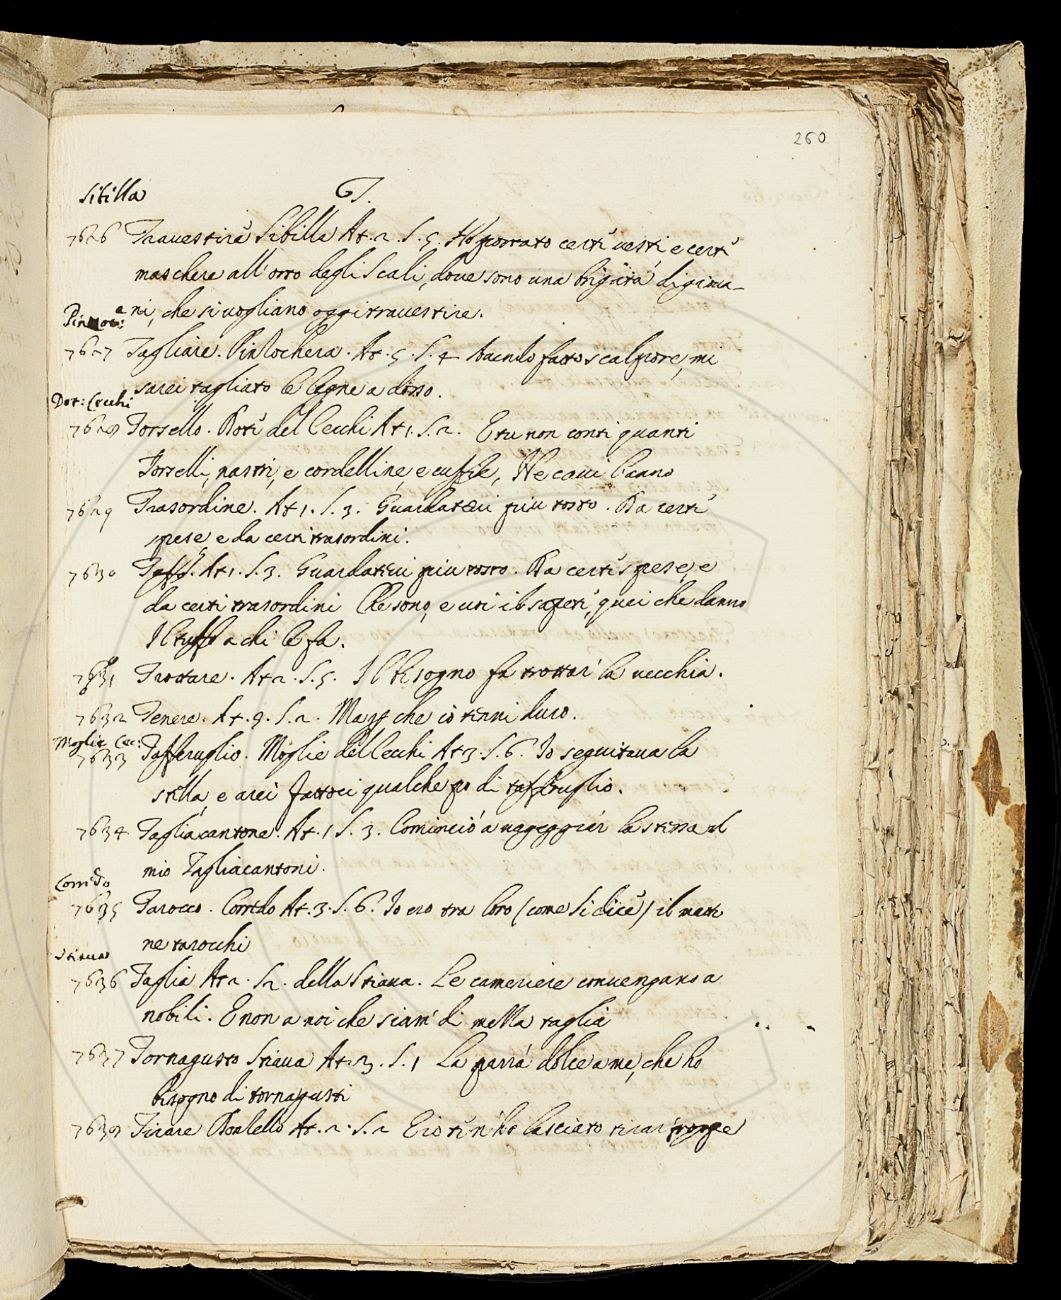 260
Sibilla
T.
7626 Travestire Sibilla At. 2. S. 5. Ho portato certi vesti, e certi
maschere all'orto degli Scali, dove sono una brigata di giova-
ni, che si vogliano oggi travestire.
Pinzoc:
7627 Tagliare. Pinzochera. At. 5. S. 4 havendo fatto scalpore, mi
sarei tagliato le legne a dosso.
Dot: Cecchi
7628 Torsello. Doti del Cecchi At 1. S. 2. E tu non conti quanti
Torselli, nastri, e cordelline, e cuffie, He cavi hanno
7629 Trasordine. At 1. S. 3. Guardatevi piu tosto. Da certi
spese e da certi trasordini.
7630 Tuffo. At 1. S. 3. Guardatevi piu tosto. Da certi spese, e
da certi trasordini Che sono, e voi il sapete, quei che danno
Il tuffo a chi le fa.
7631 Trottare. At 2. S. 5. Il bisogno fa trottar la vecchia.
7632 Tenere. At. 9. S. 2. Mayf che io tenni duro.
Moglie Cec:
7633 Tafferuglio. Moglie del Cecchi At 3. S. 6. Io seguitava la
stella, e arei fattoci qualche po di tafferuglio.
7634 Tagliacantone. At. 1 S. 3. Cominciò a vageggiar la stessa il
mio Tagliacantoni.
Corredo
7635 Tarocco. Corredo At. 3. S. 6. Io ero tra loro (come si dice) il matt
ne tarocchi
Stiava
7636 Taglia At 2. S 2. della Stiava. Le cameriere convengano a
nobili. E non a noi che siam di mezza taglia
7637 Tornagusto Stiava At. 3. S. 1 La parrà dolce a me, che ho
bisogno di tornagusti
7638 Tirare Donzello At. 2. S. 2 E io ti n'ho lasciato tirar troppe